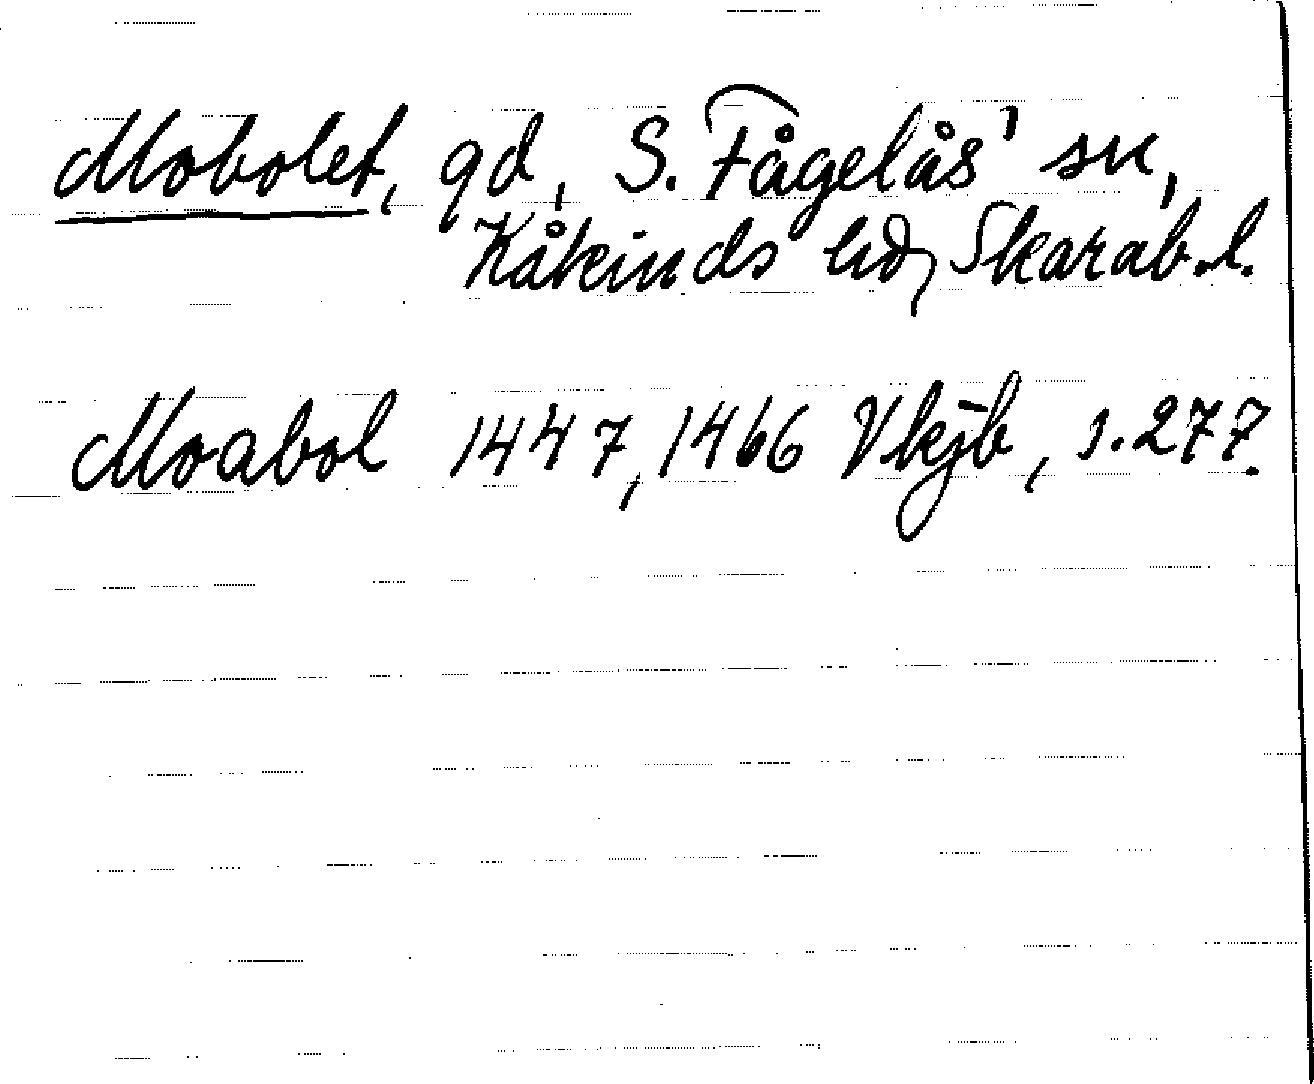 Mobolet, gd, S. Fågelås' sn,
Kåkinds hd, Skarab.l.
Moabol 1447, 1466 Vkjb, s. 277.